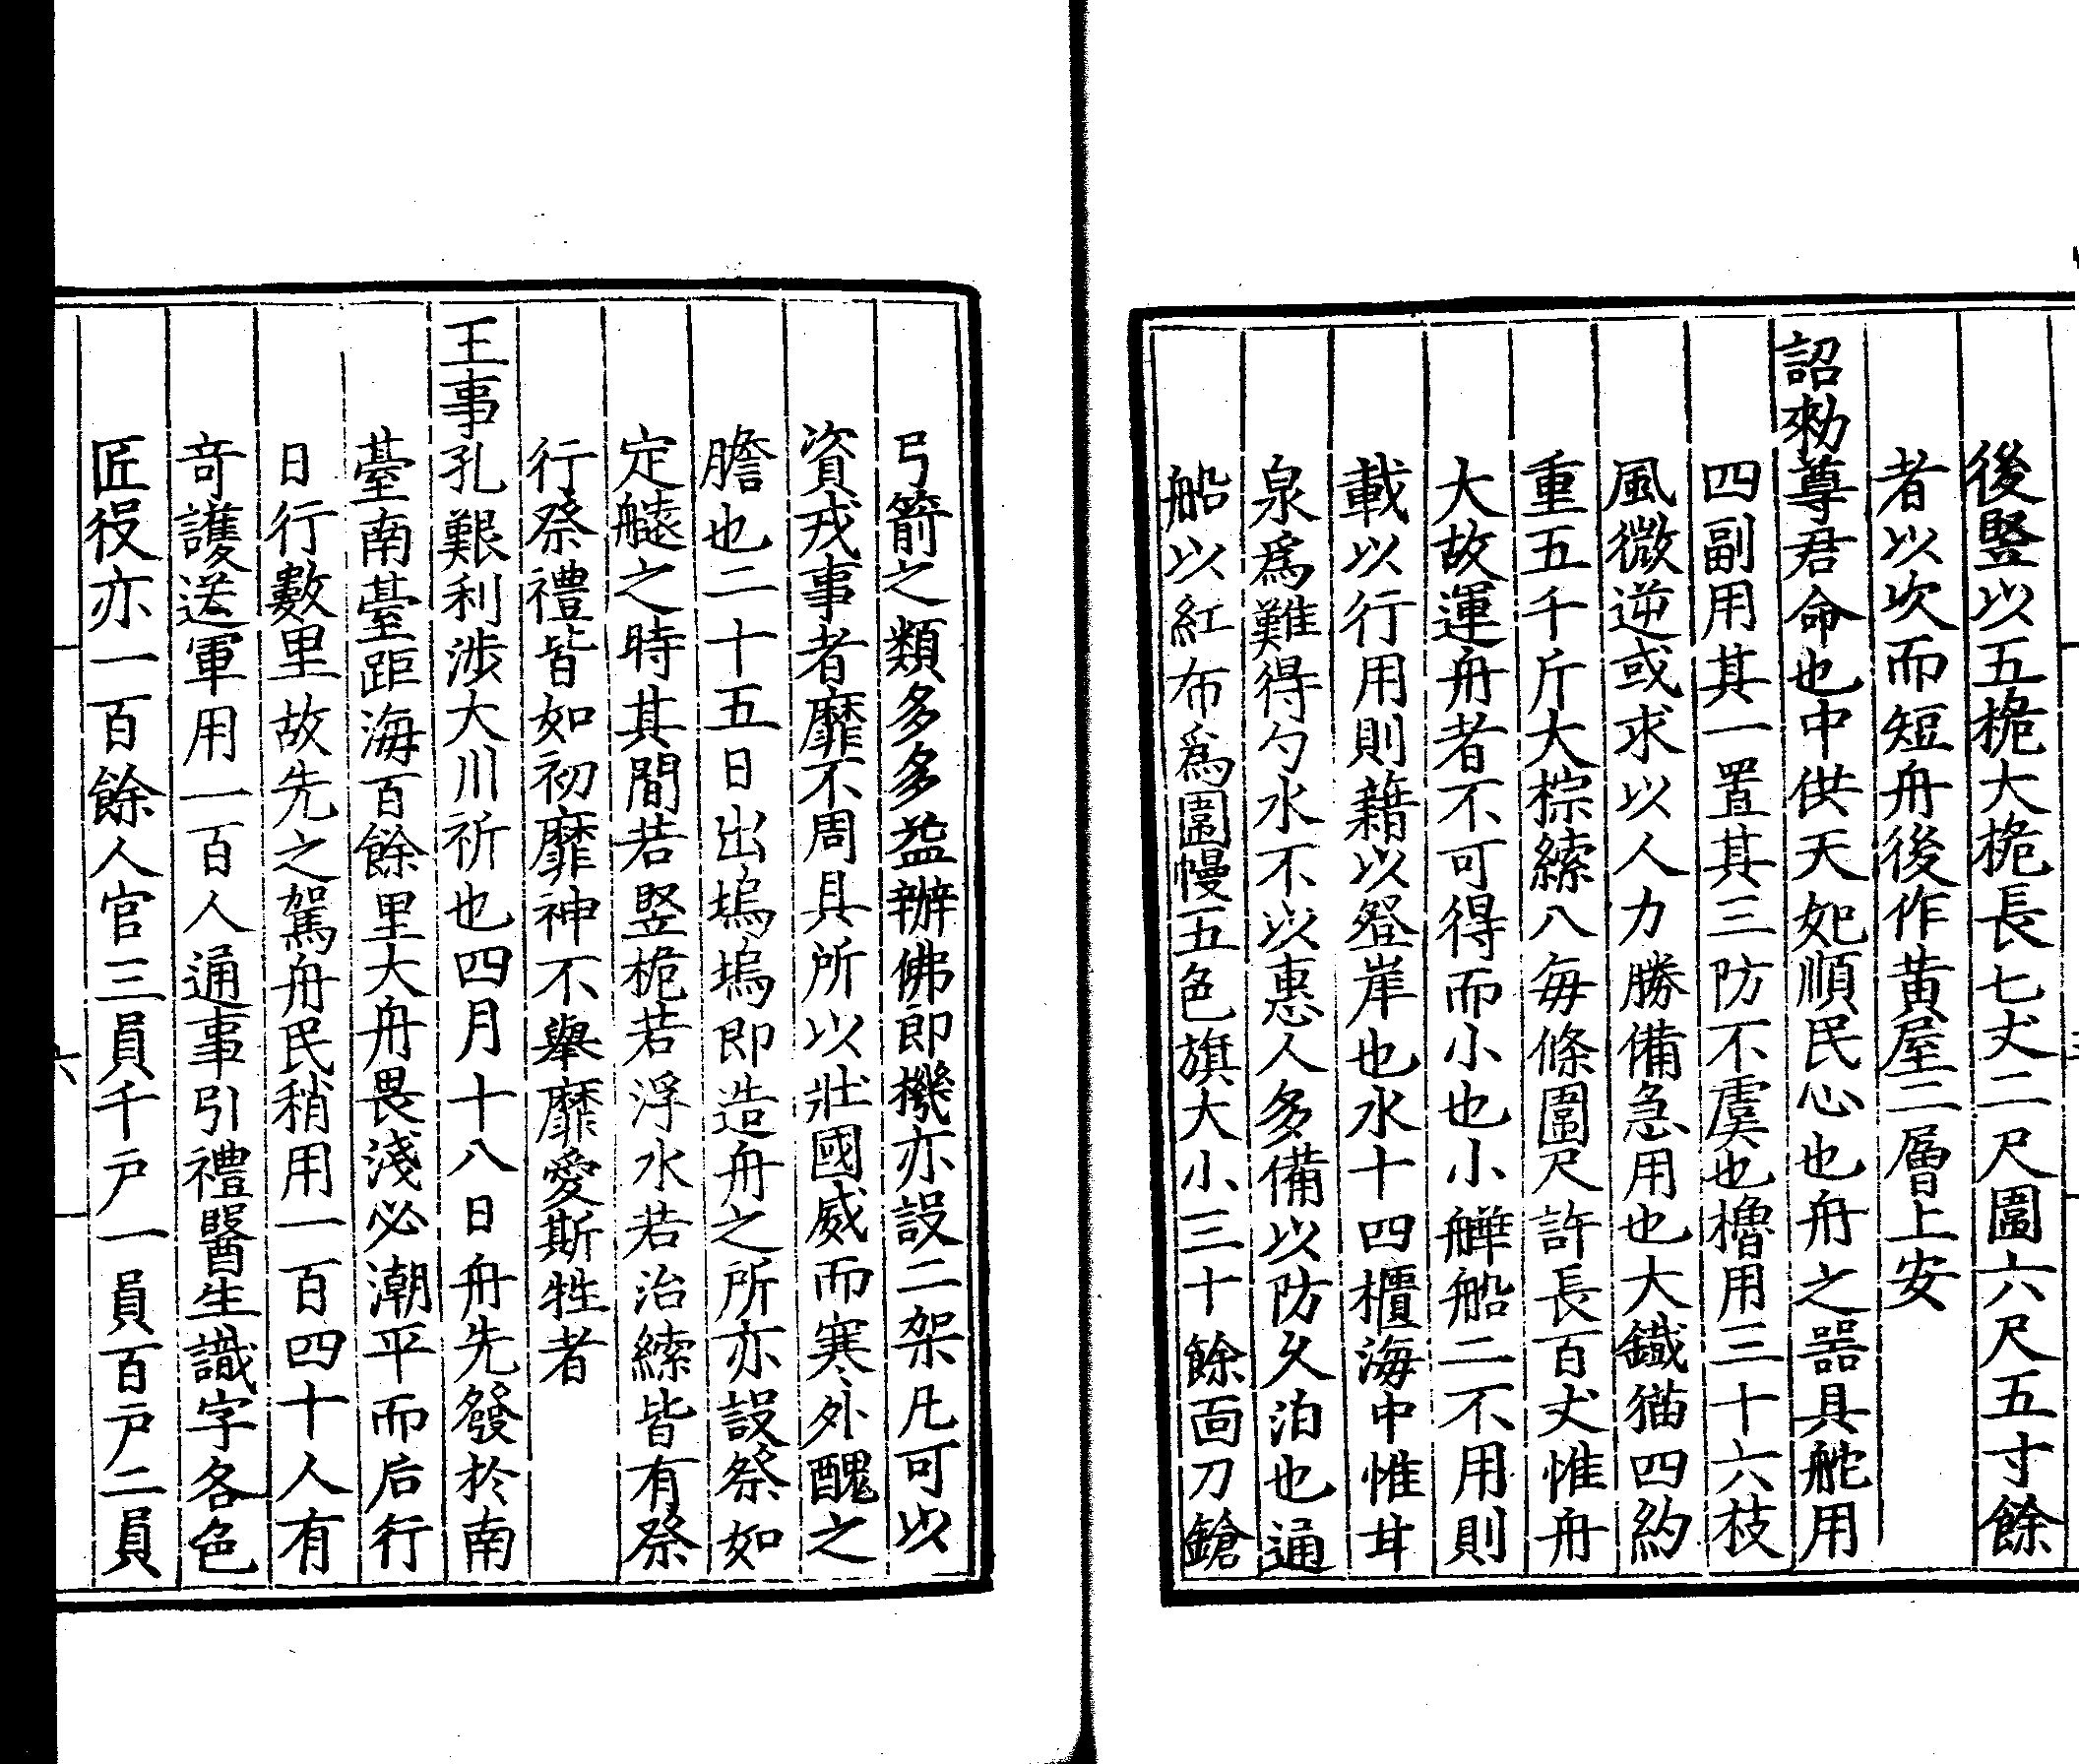 後竪以五桅大桅長七丈二尺圍六尺五寸餘
者以次而短舟後作黃屋二層上安
詔勑尊君命也中供天妃順民心也舟之器具舵用
四副用其一置其三防不虞也櫓用三十六枝
風微逆或求以人力勝備急用也大鐡猫四約
重五千斤大棕繂八每條圍尺許長百丈惟舟
大故運舟者不可得而小也小艀船二不用則
載以行用則籍以登岸也水十四櫃海中惟甘
泉爲難得勺水不以惠人多備以防久泊也通
船以紅布爲圍幔五色旗大小三十餘面刀鎗
弓箭之類多多益辦佛郎機亦設二架凡可以
資戎事者靡不周具所以壯國威而寒外醜之
膽也二十五日出塢塢即造舟之所亦設祭如
定艫之時其間若竪桅若浮水若治繂皆有祭
行祭禮皆如初靡神不舉靡愛斯牲者
王事孔艱利涉大川祈也四月十八日舟先發於南
臺南臺距海百餘里大舟畏淺必潮平而后行
日行數里故先之駕舟民稍用一百四十人有
奇護送軍用一百人通事引禮醫生識字各色
匠役亦一百餘人官三員千户一員百户二員
六